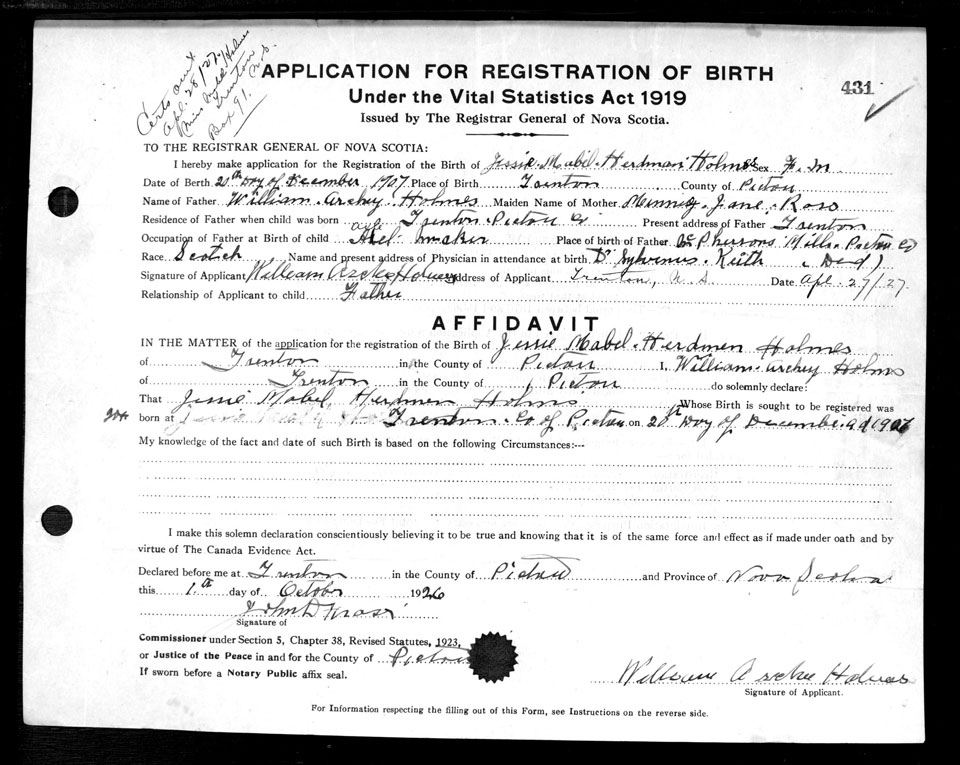 Certs out
Apl. 28/27.
Miss Mabel Holmes
Trenton
Box 91. N.S.
APPLICATION FOR REGISTRATION OF BIRTH
431
Under the Vital Statistics Act 1919
Issued by The Registrar General of Nova Scotia.
TO THE REGISTRAR GENERAL OF NOVA SCOTIA:
I hereby make application for the Registration of the Birth of Jessie Mabel Herdman Holmes Sex F. M
Date of Berth 20th Day of December 1907 Place of Birth Trenton County of Pictou
Name of Father William Archey Holmes Maiden Name of Mother Minney Jane Ross
Residence of Father when child was born Trenton Pictou Co Present address of Father Trenton
Occupation of Father at Birth of child axel maker Place of birth of Father McPhersons Mills Pictou Co
Race. Scotich Name and present address of Physician in attendance at birth. Dr Sylvinus Keith (Ded)
Signature of Applicant William Archey Holmes Address of Applicant Trenton, N S Date Apl. 27/27.
Relationship of Applicant to child Father
AFFIDAVIT
IN THE MATTER of the application for the registration of the Birth of Jessie Mabel Herdmen Holmes
of Trenton in the County of Pictou I, William Archey Holms
of Trenton in the County of Pictou do solemnly declare:
That Jessie Mabel Herdmen Holms Whose Birth is sought to be registered was
born at Trenton Co of Pictou on 20th Day of December ad 1907
My knowledge of the fact and date of such Birth is based on the following Circumstances:--
I make this solemn declaration conscientiously believing it to be true and knowing that it is of the same force and effect as if made under oath and by
virtue of The Canada Evidence Act.
Declared before me at Trenton in the County of Pictou and Province of Nova Scotia
this 1.th day of October 1926
John D Fraser
Signature of
Commissioner under Section 5, Chapter 38, Revised Statutes, 1923,
or Justice of the Peace in and for the County of Pictou
If sworn before a Notary Public affix seal.
William Archey Holmes
Signature of Applicant.
For Information respecting the filling out of this Form, see Instructions on the reverse side.